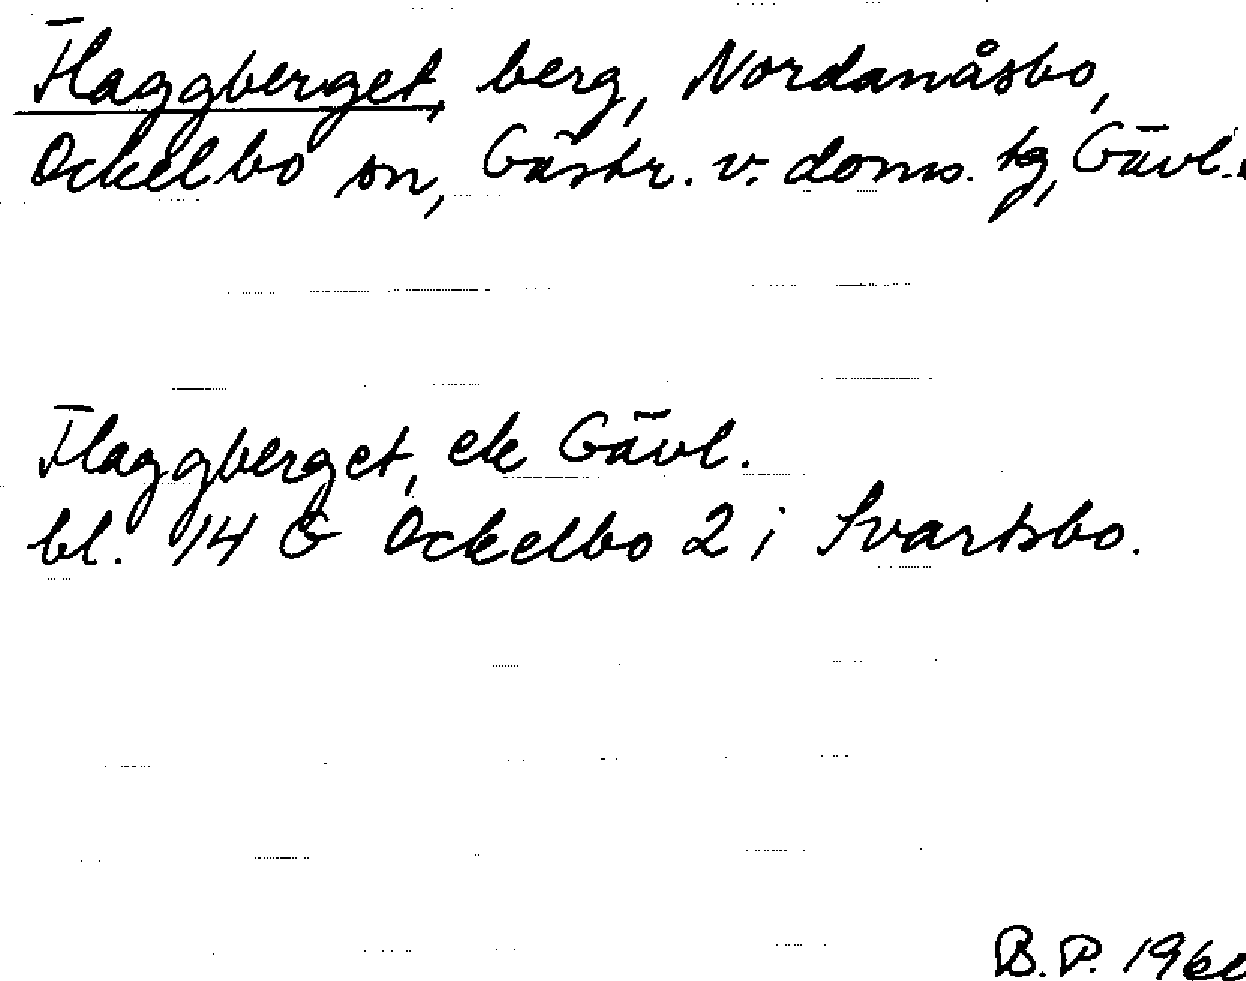 Flaggberget, berg, Nordanåsbo,
Ockelbo sn, Gästr. v. doms. tg, Gävl.
Flaggberget, ek Gävl.
bl. 14 G Ockelbo 2 i Svartsbo.
B. P. 1960